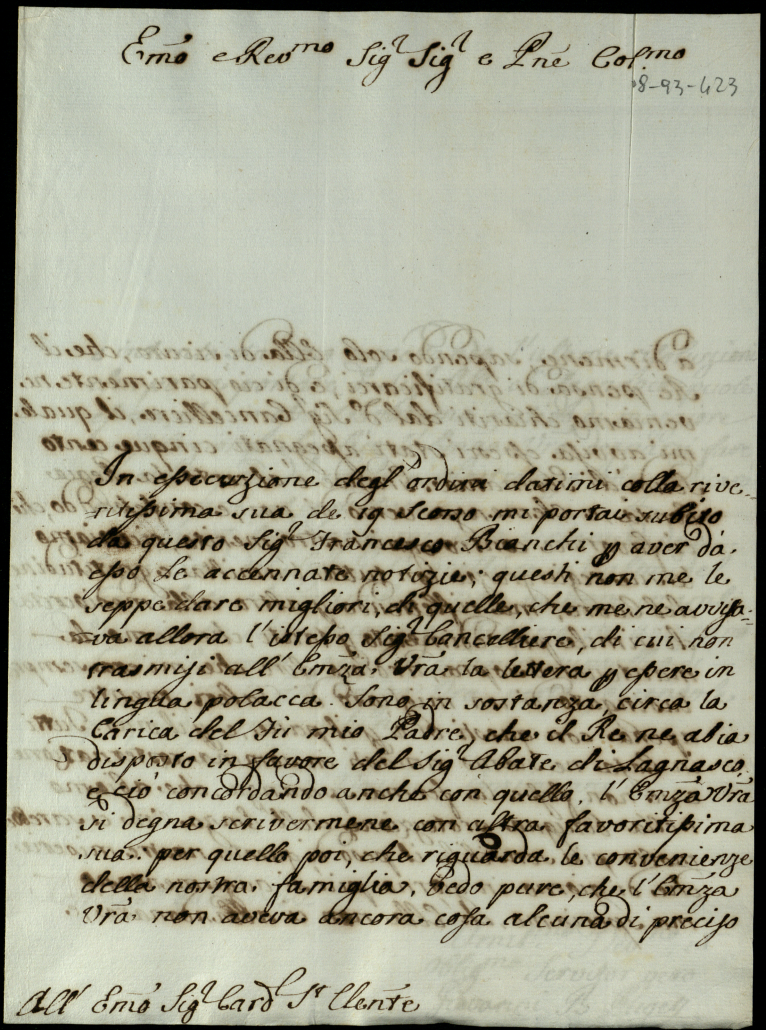 Em̃o e Rev.mo Sig.r Sig.r e Pñe Col.mo
8-93-423
In essecuzione degl'ordini datimi colla rive-
ritissima sua de 19 scorso mi portai subito
da questo Sig.r Francesco Bianchi p aver da
esso le accennate notizie; questi non me le
seppe dare migliori, di quelle, che me ne avvisa-
va allora l'istesso Sig.r Cancelliere, di cui non
trasmisi all' Em̃za Vrã la lettera p essere in
lingua polacca. Sono in sostanza, circa la
Carica del Fù mio Padre, che il Re ne abia
disposto in favore del Sig.r Abate di Lagnasco,
e ciò concordando anche con quello, l'Em̃za Vrã
si degna scrivermene con altra favoritissima
sua. per quello poi, che riguarda le convenienze
della nostra famiglia, vedo pure, che l'Em̃za
Vrã non aveva ancora cosa alcuna di preciso
All' Em̃o Sig.r Card.l S.t Clem̃te